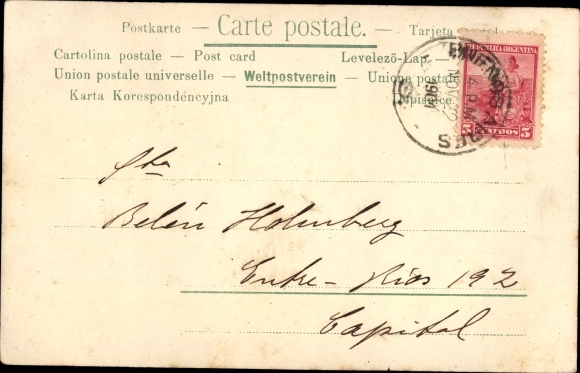 Postkarte — Carte postale. — Tarjeta
Cartolina postale — Post card Levelező-Lap —
Union postale universelle — Weltpostverein — Unione postale
Karta Korespondéncyjna
REPUBLICA ARGENTINA
5 CENTAVOS 5
BUENOS AIRES
NOV 23
4 P.M.
1904
Srta
Belén Holmberg
Entre-Rios 192
Capital